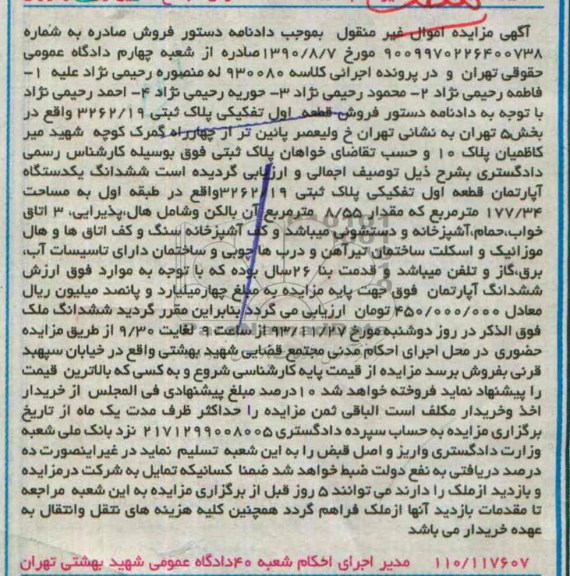 آگهی مزایده اموال غیر منقول بموجب دادنامه دستور فروش صادره به شماره
۹۰۰۹۹۷۰۲۲۶۴۰۰۷۳۸ مورخ ۱۳۹۰/۸/۷صادره از شعبه چهارم دادگاه عمومی
حقوقی تهران و در پرونده اجرائی کلاسه ۹۳۰۰۸۰ له منصوره رحیمی نژاد علیه ۱-
فاطمه رحیمی نژاد ۲- محمود رحیمی نژاد ۳- حوریه رحیمی نژاد ۴- احمد رحیمی نژاد
با توجه به دادنامه دستور فروش قطعه اول تفکیکی پلاک ثبتی ۳۲۶۲/۱۹ واقع در
بخش۵ تهران به نشانی تهران خ ولیعصر پائین تر از چهارراه گمرک کوچه شهید میر
کاظمیان پلاک ۱۰ و حسب تقاضای خواهان پلاک ثبتی فوق بوسیله کارشناس رسمی
دادگستری بشرح ذیل توصیف اجمالی و ارزیابی گردیده است ششدانگ یکدستگاه
آپارتمان قطعه اول تفکیکی پلاک ثبتی ۳۲۶۲/۱۹واقع در طبقه اول به مساحت
۱۷۷/۳۴ مترمربع که مقدار ۸/۵۵ مترمربع آن بالکن وشامل هال،پذیرایی، ۳ اتاق
خواب،حمام،آشپزخانه و دستشوئی میباشد و کف آشپزخانه سنگ و کف اتاق ها و هال
موزائیک و اسکلت ساختمان تیرآهن و درب ها چوبی و ساختمان دارای تاسیسات آب،
برق،گاز و تلفن میباشد و قدمت بنا ۲۶سال بوده که با توجه به موارد فوق ارزش
ششدانگ آپارتمان فوق جهت پایه مزایده به مبلغ چهارمیلیارد و پانصد میلیون ریال
معادل ۴۵۰/۰۰۰/۰۰۰ تومان ارزیابی می گردد بنابراین مقرر گردید ششدانگ ملک
فوق الذکر در روز دوشنبه مورخ ۹۳/۱۱/۲۷ از ساعت ۹ لغایت ۹/۳۰ از طریق مزایده
حضوری در محل اجرای احکام مدنی مجتمع قضایی شهید بهشتی واقع در خیابان سپهبد
قرنی بفروش برسد مزایده از قیمت پایه کارشناسی شروع و به کسی که بالاترین قیمت
را پیشنهاد نماید فروخته خواهد شد ۱۰درصد مبلغ پیشنهادی فی المجلس از خریدار
اخذ وخریدار مکلف است الباقی ثمن مزایده را حداکثر ظرف مدت یک ماه از تاریخ
برگزاری مزایده به حساب سپرده دادگستری ۲۱۷۱۲۹۹۰۰۸۰۰۵ نزد بانک ملی شعبه
وزارت دادگستری واریز و اصل قبض را به این شعبه تسلیم نماید در غیراینصورت ده
درصد دریافتی به نفع دولت ضبط خواهد شد ضمنا کسانیکه تمایل به شرکت درمزایده
و بازدید ازملک را دارند می توانند ۵ روز قبل از برگزاری مزایده به این شعبه مراجعه
تا مقدمات بازدید آنها ازملک فراهم گردد همچنین کلیه هزینه های نتقل وانتقال به
عهده خریدار می باشد
۱۱۰/۱۱۷۶۰۷ مدیر اجرای احکام شعبه ۴۰دادگاه عمومی شهید بهشتی تهران